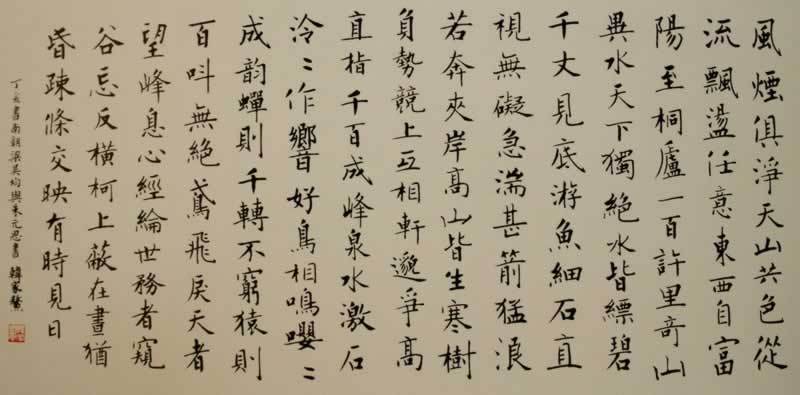 風煙俱淨天山共色從
流飄盪任意東西自富
陽至桐廬一百許里竒山
異水天下獨絕水皆縹碧
千丈見底游魚細石直
視無礙急湍甚箭猛浪
若奔夾岸高山皆生寒樹
負勢競上互相軒邈爭高
直指千百成峰泉水激石
泠〻作響好鳥相鳴嚶〻
成韵蟬則千轉不窮猿則
百叫無絕鳶飛戾天者
望峰息心經綸世務者窺
谷忘反橫柯上蔽在晝猶
昏疎條交映有時見日
丁亥書南朝梁吳均與朱元思書 韓家鰲